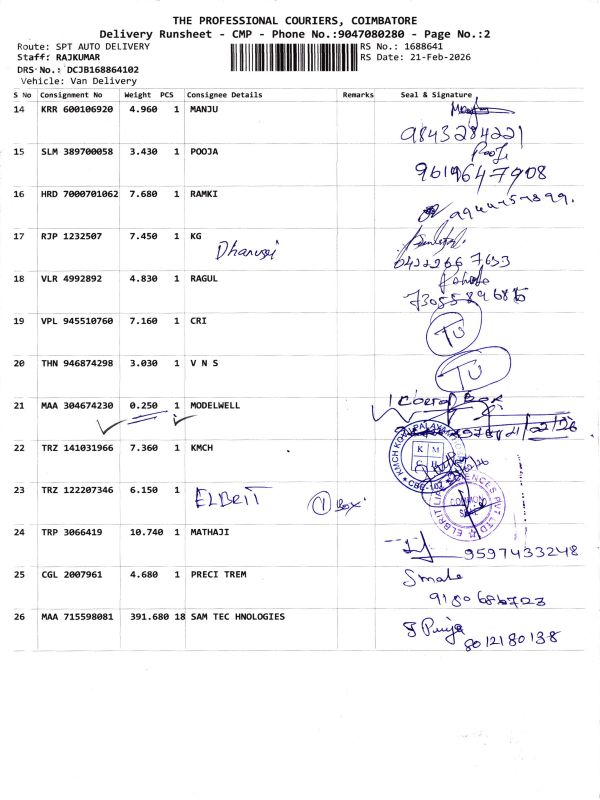 THE PROFESSIONAL COURIERS, COIMBATORE
Delivery Runsheet - CMP - Phone No.:9047080280 - Page No.:2
Route: SPT AUTO DELIVERY RS No.: 1688641
Staff: RAJKUMAR RS Date: 21-Feb-2026
DRS No.: DCJB168864102
Vehicle: Van Delivery
S No Consignment No Weight PCS Consignee Details Remarks Seal & Signature
14 KRR 600106920 4.960 1 MANJU
9843284221
15 SLM 389700058 3.430 1 POOJA Pooja
9619647908
16 HRD 7000701062 7.680 1 RAMKI
17 RJP 1232507 7.450 1 KG
0422266 7653
18 VLR 4992892 4.830 1 RAGUL
19 VPL 945510760 7.160 1 CRI
20 THN 946874298 3.030 1 V N S
21 MAA 304674230 0.250 1 MODELWELL
22 TRZ 141031966 7.360 1 KMCH
K M
23 TRZ 122207346 6.150 1 ELBRIT 1 Box
COMMON SEAL
24 TRP 3066419 10.740 1 MATHAJI
9597433248
25 CGL 2007961 4.680 1 PRECI TREM
9180686723
26 MAA 715598081 391.680 18 SAM TEC HNOLOGIES
8012180138